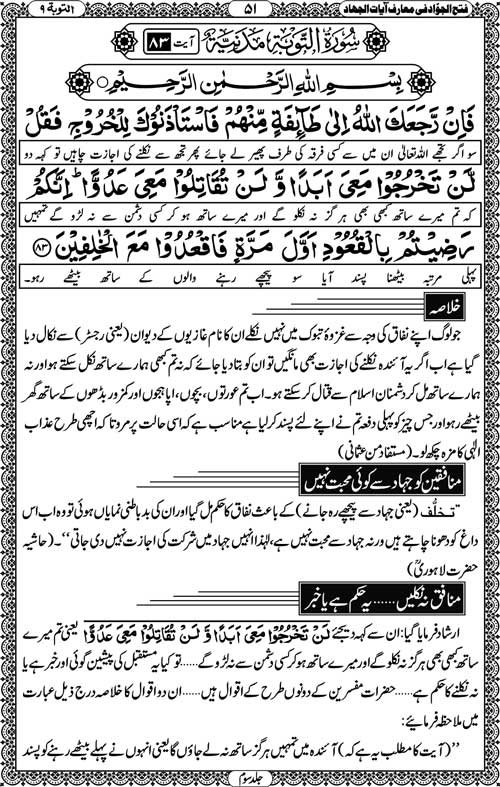 فتح الجوّاد فی معارف آیات الجہاد ۵۱ التوبة ۹
سُورَةُ التَّوْبَةِ مَدَنِيَّةٌ آیت ۸۳
بِسْمِ اللهِ الرَّحْمٰنِ الرَّحِيْمِ
فَاِنْ رَّجَعَكَ اللهُ اِلٰى طَآئِفَةٍ مِّنْهُمْ فَاسْتَاْذَنُوْكَ لِلْخُرُوْجِ فَقُلْ
سو اگر تجھے اللہ تعالیٰ ان میں سے کسی فرقہ کی طرف پھیر لے جائے پھر تجھ سے نکلنے کی اجازت چاہیں تو کہہ دو
لَّنْ تَخْرُجُوْا مَعِىَ اَبَدًا وَّ لَنْ تُقَاتِلُوْا مَعِىَ عَدُوًّا ؕ اِنَّكُمْ
کہ تم میرے ساتھ کبھی بھی ہرگز نہ نکلو گے اور میرے ساتھ ہو کر کسی دشمن سے نہ لڑو گے تمہیں
رَضِيْتُمْ بِالْقُعُوْدِ اَوَّلَ مَرَّةٍ فَاقْعُدُوْا مَعَ الْخٰلِفِيْنَ ﴿۸۳﴾
پہلی مرتبہ بیٹھنا پسند آیا سو پیچھے رہنے والوں کے ساتھ بیٹھے رہو۔
خلاصہ
جو لوگ اپنے نفاق کی وجہ سے غزوۂ تبوک میں نہیں نکلے ان کا نام غازیوں کے دیوان (یعنی رجسٹر) سے نکال دیا
گیا ہے اب اگر یہ آئندہ نکلنے کی اجازت بھی مانگیں تو ان کو بتا دیا جائے کہ نہ تم کبھی ہمارے ساتھ نکل سکتے ہو اور نہ
ہمارے ساتھ مل کر دشمنان اسلام سے قتال کر سکتے ہو۔ اب تم عورتوں، بچوں، اپاہجوں اور کمزور بڈھوں کے ساتھ گھر
بیٹھے رہو اور جس چیز کو پہلی دفعہ تم نے اپنے لئے پسند کر لیا ہے مناسب ہے کہ اسی حالت پر مرو تا کہ اچھی طرح عذاب
الٰہی کا مزہ چکھ لو۔ (مستفاد من عثمانی)
منافقین کو جہاد سے کوئی محبت نہیں
”تخلّف (یعنی جہاد سے پیچھے رہ جانے) کے باعث نفاق کا حکم مل گیا اور ان کی بد باطنی نمایاں ہوئی تو وہ اب اس
داغ کو دھونا چاہتے ہیں ورنہ جہاد سے محبت نہیں ہے، لہٰذا انہیں جہاد میں شرکت کی اجازت نہیں دی جاتی“۔ (حاشیہ
حضرت لاہوریؒ)
منافق نہ نکلیں……یہ حکم ہے یا خبر
ارشاد فرمایا گیا: ان سے کہہ دیجئے لَنْ تَخْرُجُوْا مَعِىَ اَبَدًا وَّ لَنْ تُقَاتِلُوْا مَعِىَ عَدُوًّا یعنی تم میرے
ساتھ کبھی بھی ہرگز نہ نکلو گے اور میرے ساتھ ہو کر کسی دشمن سے نہ لڑو گے……تو کیا یہ مستقبل کی پیشین گوئی اور خبر ہے یا
نہ نکلنے کا حکم ہے……حضرات مفسرین کے دونوں طرح کے اقوال ہیں……ان دو اقوال کا خلاصہ درج ذیل عبارت
میں ملاحظہ فرمائیے:
”(آیت کا مطلب یہ ہے کہ) آئندہ میں تمہیں ہرگز ساتھ نہ لے جاؤں گا یعنی انہوں نے پہلے بیٹھے رہنے کو پسند
جلد سوم